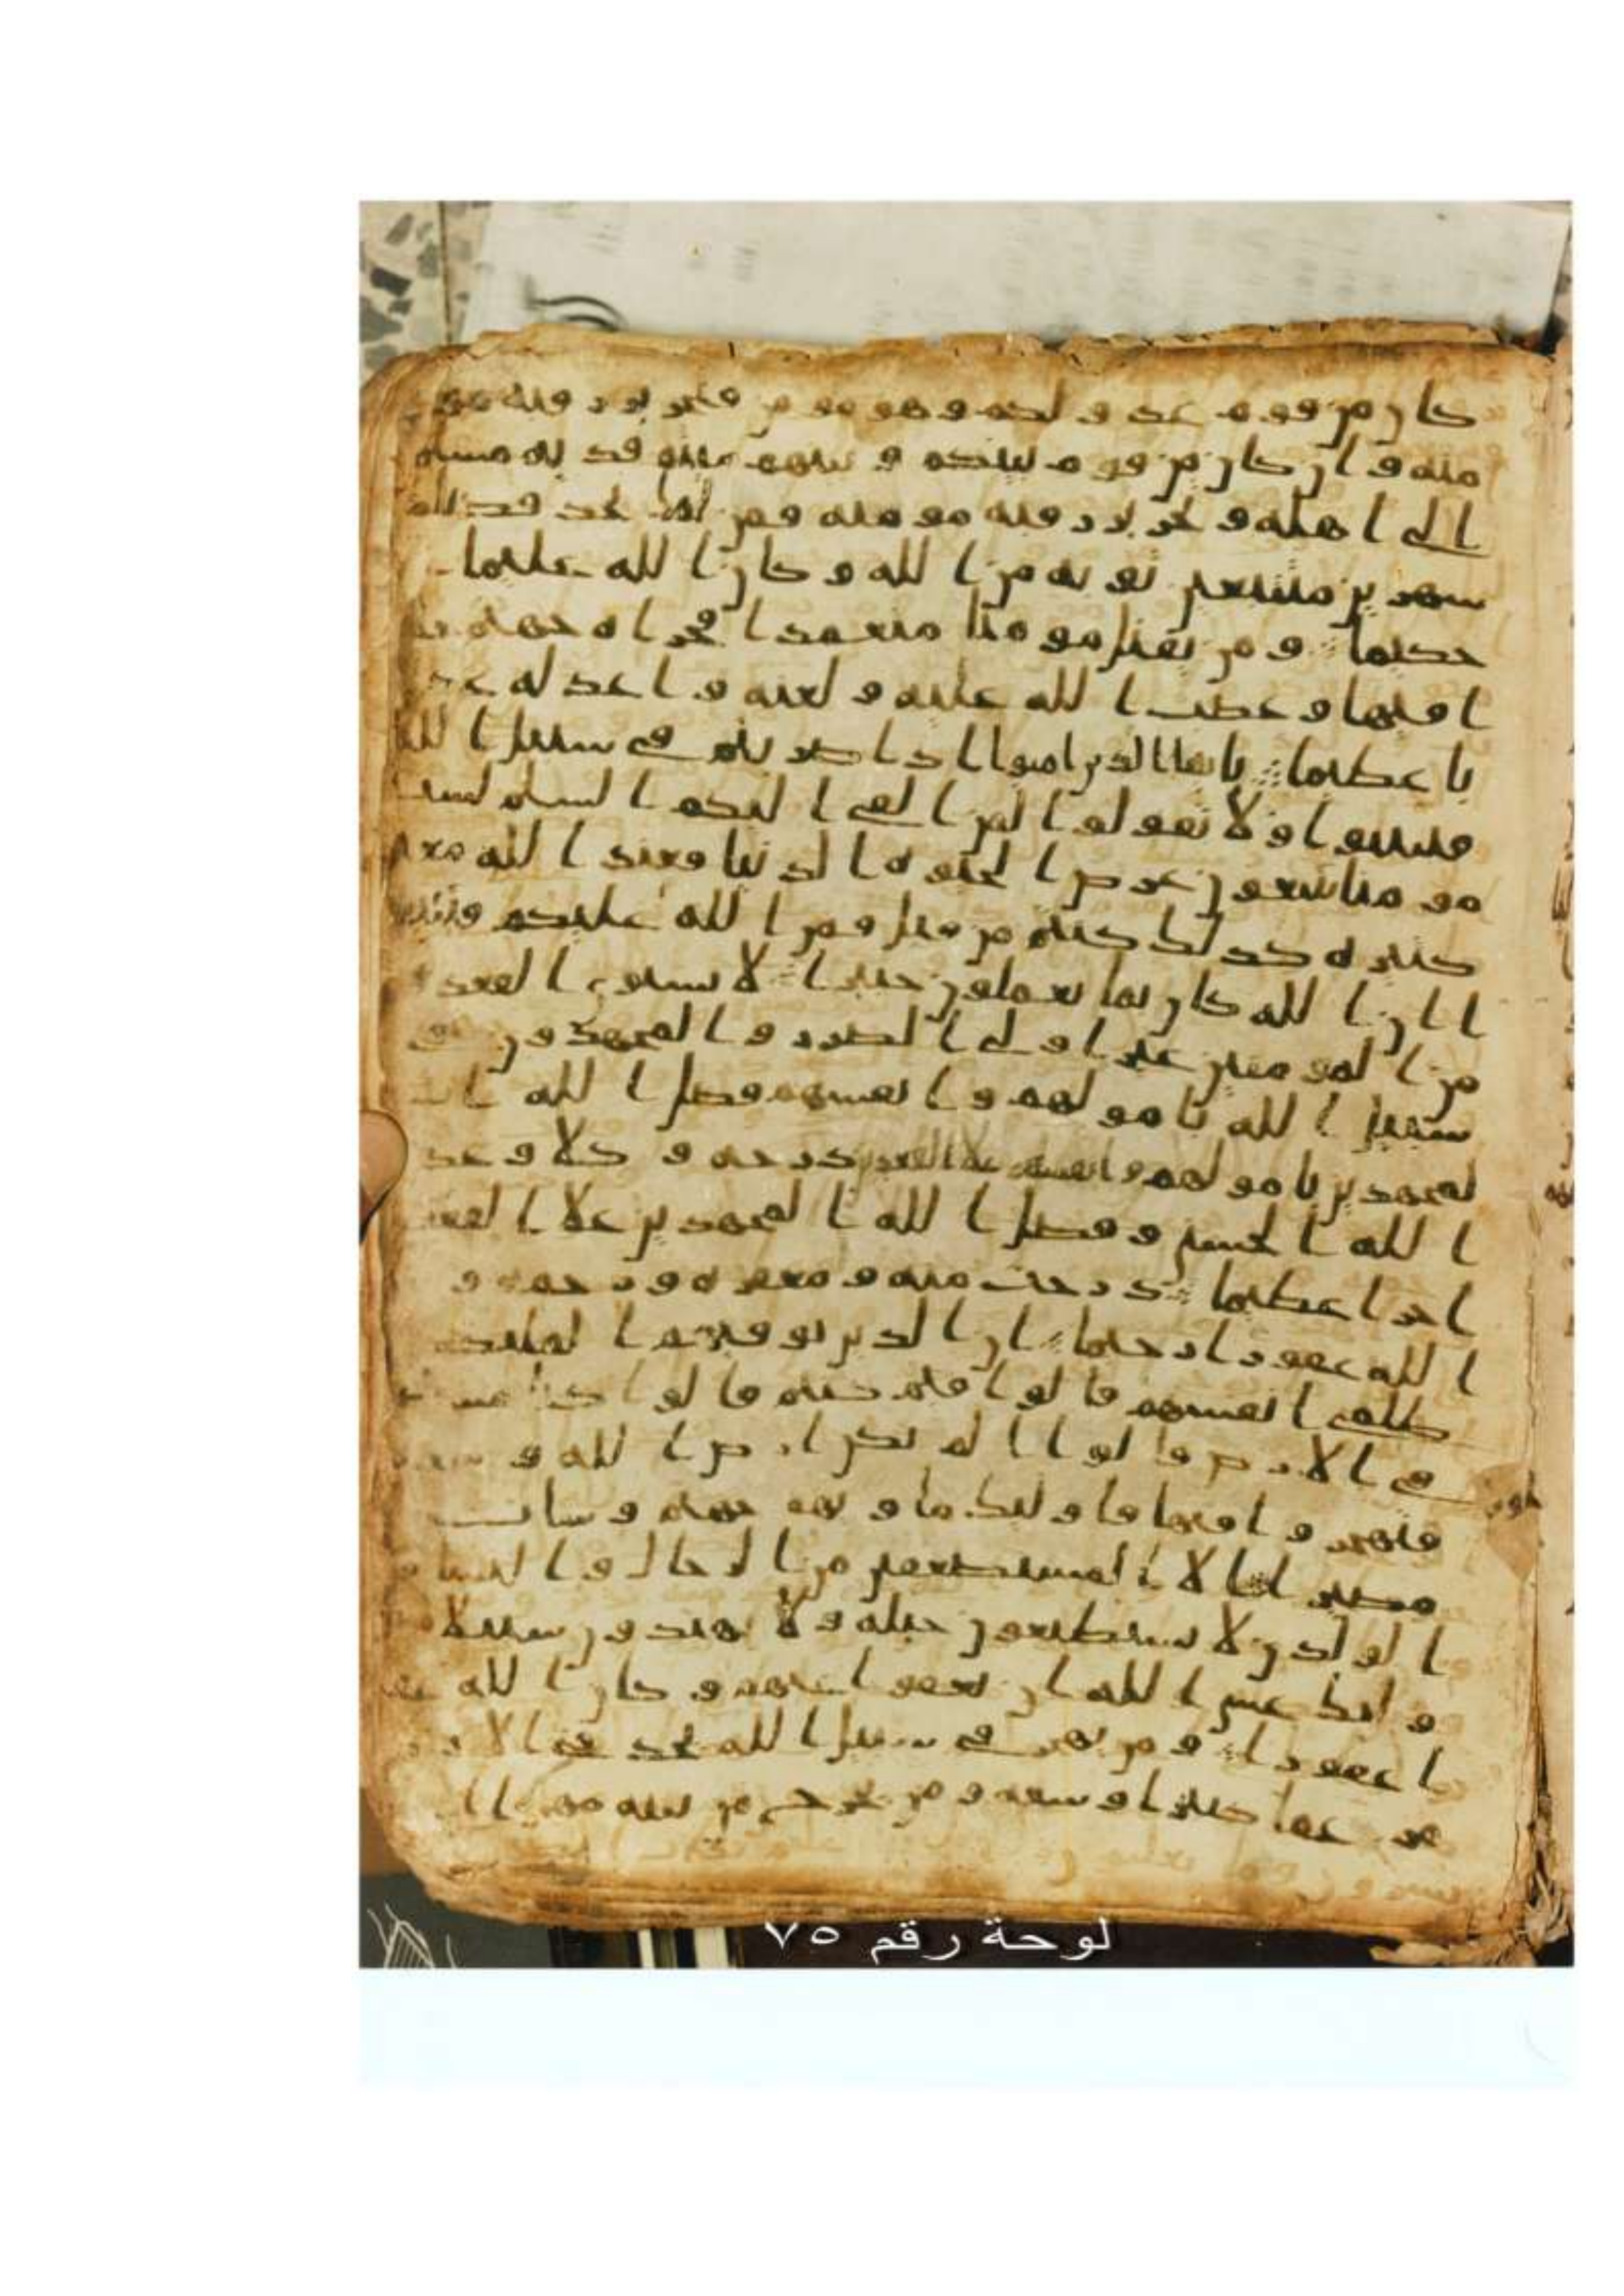 كان من قوم عدو لكم وهو مومن فتحرير رقبة مو
منة وان كان من قوم بينكم وبينهم ميثق فدية مسلمة
الى اهله وتحرير رقبة مومنة فمن لم يجد فصيام
شهرين متتبعين توبة من الله وكان الله عليما
حكيما ومن يقتل مومنا متعمدا فجزاه جهنم خلد
ا فيها وغضب الله عليه ولعنه واعد له عذ
ابا عظيما يايها الذين امنوا اذا ضربتم في سبيل الله
فتبينوا ولا تقولوا لمن القى اليكم السلم لست
مومنا تبتغون عرض الحيوة الدنيا فعند الله مغنم
كثيرة كذلك كنتم من قبل فمن الله عليكم فتبينو
ا ان الله كان بما تعملون خبيرا لا يستوى القعدو
ن من المومنين غير اولى الضرر والمجهدون في
سبيل الله باموالهم وانفسهم فضل الله ا
لمجهدين باموالهم وانفسهم على القعدين درجة وكلا وعد
الله الحسنى وفضل الله المجهدين على القعد
اجرا عظيما درجت منه ومغفرة ورحمة و
الله غفورا رحيما ان الذين توفيهم الملئكة
ظلمى انفسهم قالوا فيم كنتم قالوا كنا مستضـ
في الارض قالوا الم تكن ارض الله وسعة
فتهجروا فيها فاولئك ماويهم جهنم وسات
مصيرا الا المستضعفين من الرجال والنساء و
الولدن لا يستطيعون حيلة ولا يهتدون سبيلا
فاولئك عسى الله ان يعفوا عنهم وكان الله عفو
ا غفورا ومن يهجر في سبيل الله يجد في الار
ض مرغما كثيرا وسعة ومن يخرج من بيته مهجرا
لوحة رقم ٧٥